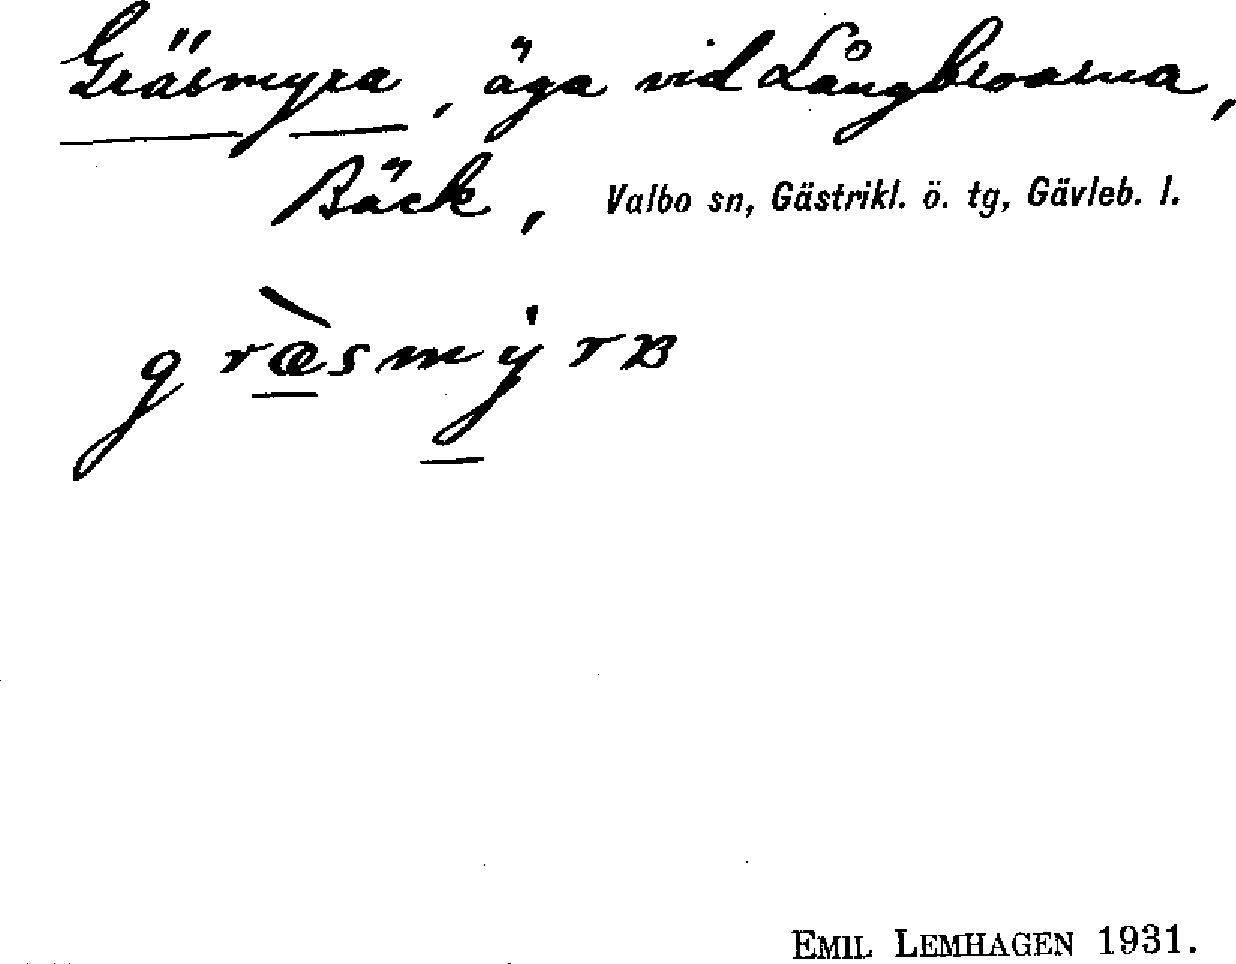 Gräsmyra, äga vid Långbroarna,
Bäck, Valbo sn, Gästrikl. ö. tg, Gävleb. l.
græ̀smẏrʙ
EMIL LEMHAGEN 1931.